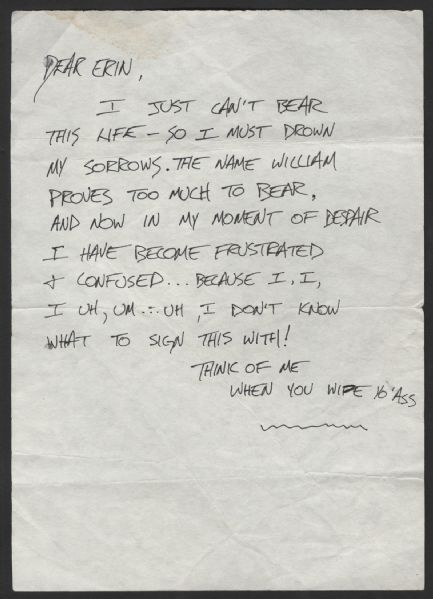 DEAR ERIN,
I JUST CAN'T BEAR
THIS LIFE - SO I MUST DROWN
MY SORROWS. THE NAME WILLIAM
PROVES TOO MUCH TO BEAR,
AND NOW IN MY MOMENT OF DESPAIR
I HAVE BECOME FRUSTRATED
& CONFUSED... BECAUSE I, I,
I UH, UM... UH, I DON'T KNOW
WHAT TO SIGN THIS WITH!
THINK OF ME
WHEN YOU WIPE YO' ASS